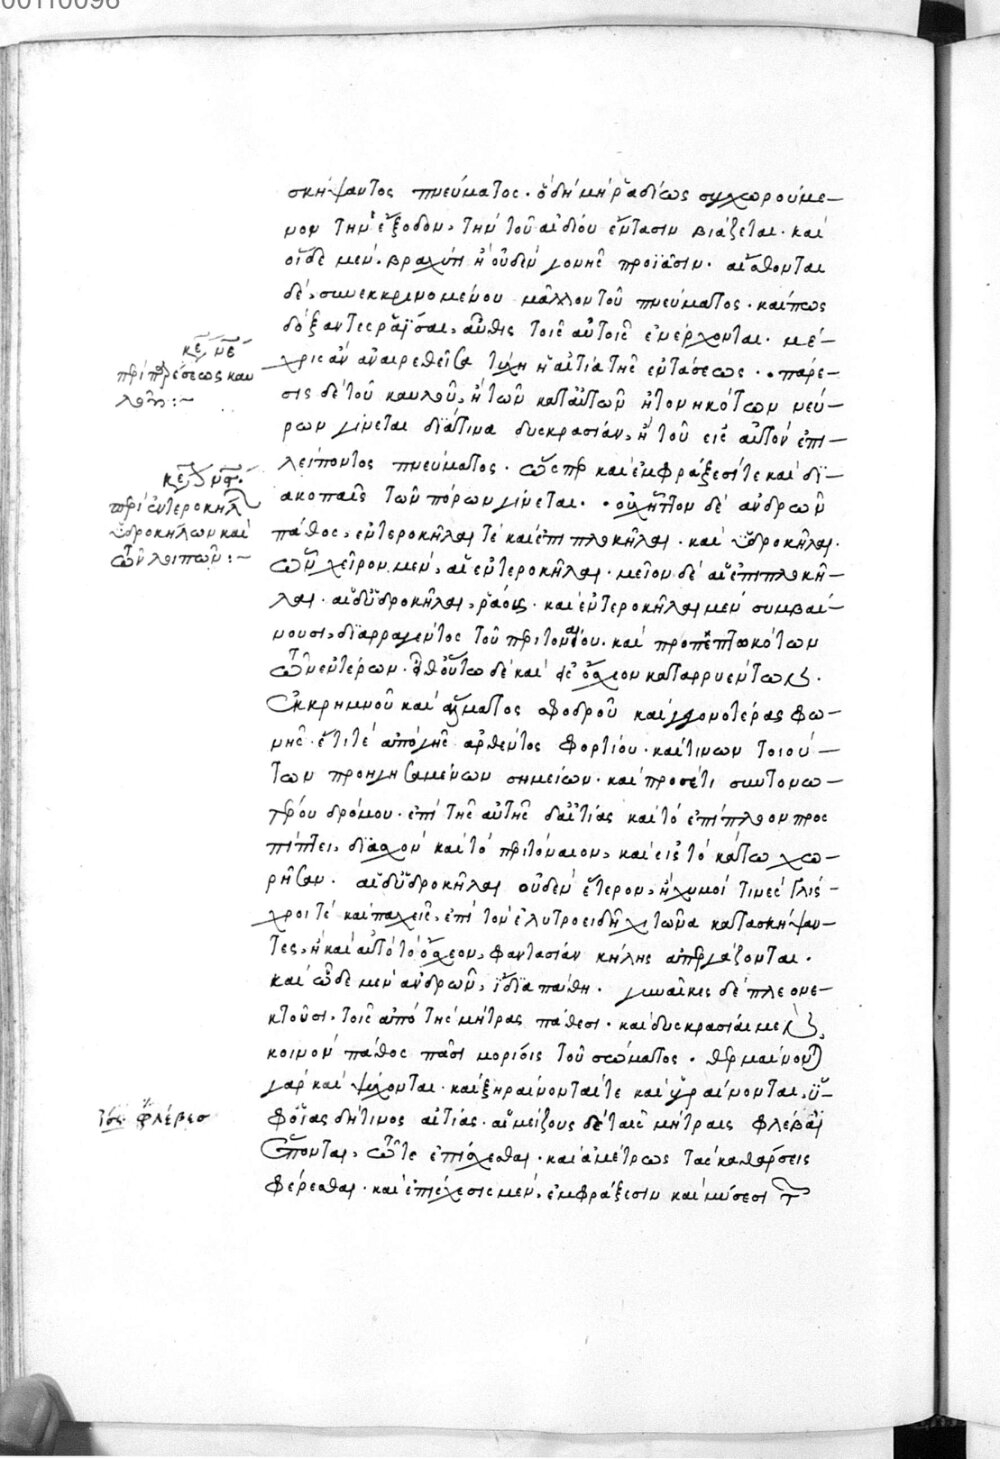 00110098
σκήψαντος πνεύματος· ὃ δὴ μὴ ῥαδίως συγχωρούμε-
νον τὴν ἔξοδον, τὴν τοῦ αἰδοίου ἔντασιν βιάζεται· καὶ
οἵδε μὲν βραχύτι ἢ οὐδὲν γονῆς προϊᾶσιν· αἴσθονται
δὲ, συνεκκρινομένου μᾶλλον τοῦ πνεύματος· καίπως
δόξαντες ῥαΐσαι, αὖθις τοῖς αὐτοῖς ἐνέρχονται· μέ-
χρις ἂν ἀναιρεθεῖσα τύχῃ ἡ αἰτία τῆς ἐντάσεως·· πάρε-
σις δὲ τοῦ καυλοῦ, ἢ τῶν κατ' αὐτῶν ἠτονηκότων νεύ-
ρων γίνεται διά τινα δυσκρασίαν, ἢ τοῦ εἰς αὐτὸν ἐπι-
λείποντος πνεύματος· ὥσπερ καὶ ἐμφράξεσί τε καὶ δι-
ακοπαῖς τῶν πόρων γίνεται·· οὐχ ἧττον δὲ ἀνδρῶν
πάθος, ἐντεροκῆλαι τὲ καὶ ἐπιπλοκῆλαι· καὶ ὑδροκῆλαι·
ὧν χεῖρον μὲν, αἱ ἐντεροκῆλαι· μεῖον δὲ αἱ ἐπιπλοκῆ-
λαι· αἱ δ' ὑδροκῆλαι, ῥάους· καὶ ἐντεροκῆλαι μὲν συμβαί-
νουσι, διαρραγέντος τοῦ περιτοναίου· καὶ προπεπτωκότων
τῶν ἐντέρων· ἔσθ' οὕτω δὲ καὶ εἰς ὄσχεον καταρρυέντων·
ἐκ κρημνοῦ καὶ ἅλματος σφοδροῦ καὶ γεγονοτέρας φω-
νῆς· ἔτι τὲ ἀπὸ γῆς ἀρθέντος φορτίου· καὶ τινων τοιού-
των προηγησαμένων σημείων· καὶ προσέτι συντονω-
τέρου δρόμου· ἐπὶ τῆς αὐτῆς δ' αἰτίας καὶ τὸ ἐπίπλοον προς
πίπτει, διασχὸν καὶ τὸ περιτόναιον, καὶ εἰς τὸ κάτω χω-
ρῆσαν· αἱ δ' ὑδροκῆλαι οὐδὲν ἕτερον, ἢ χυμοί τινες γλίσ-
χροι τὲ καὶ παχεῖς, ἐπὶ τὸν ἐλυτροειδῆ χιτῶνα κατασκήψαν-
τες, ἢ καὶ αὐτὸ τὸ ὄσχεον, φαντασίαν κήλης ἀπεργάζονται·
καὶ ὧδε μὲν ἀνδρῶν, ἴδια πάθη· γυναῖκες δὲ πλεονε-
κτοῦσι, τοῖς ἀπὸ τῆς μήτρας πάθεσι· καὶ δυσκρασίαι μὲν,
κοινὸν πάθος πᾶσι μορίοις τοῦ σώματος· θερμαίνονται
γὰρ καὶ ψύχονται· καὶ ξηραίνονταί τε καὶ ὑγραίνονται, ὑ-
φ' οἵας δήτινος αἰτίας· αἱ μείζους δὲ ταῖς μήτραις φλέβαι
ἕπονται, ὥστε ἐπίσχεσθαι· καὶ ἀμέτρως τὰς καθάρσεις
φέρεσθαι· καὶ ἐπισχέσεις μὲν, ἐμφράξεσιν καὶ μύσεσι τ
κε νε
περὶ παρέσεως καυ
λοῦ:~
κε νστ.
περὶ ἐντεροκηλ
ὑδροκηλῶν καὶ
τῶν λοιπῶν:~
φλέβες